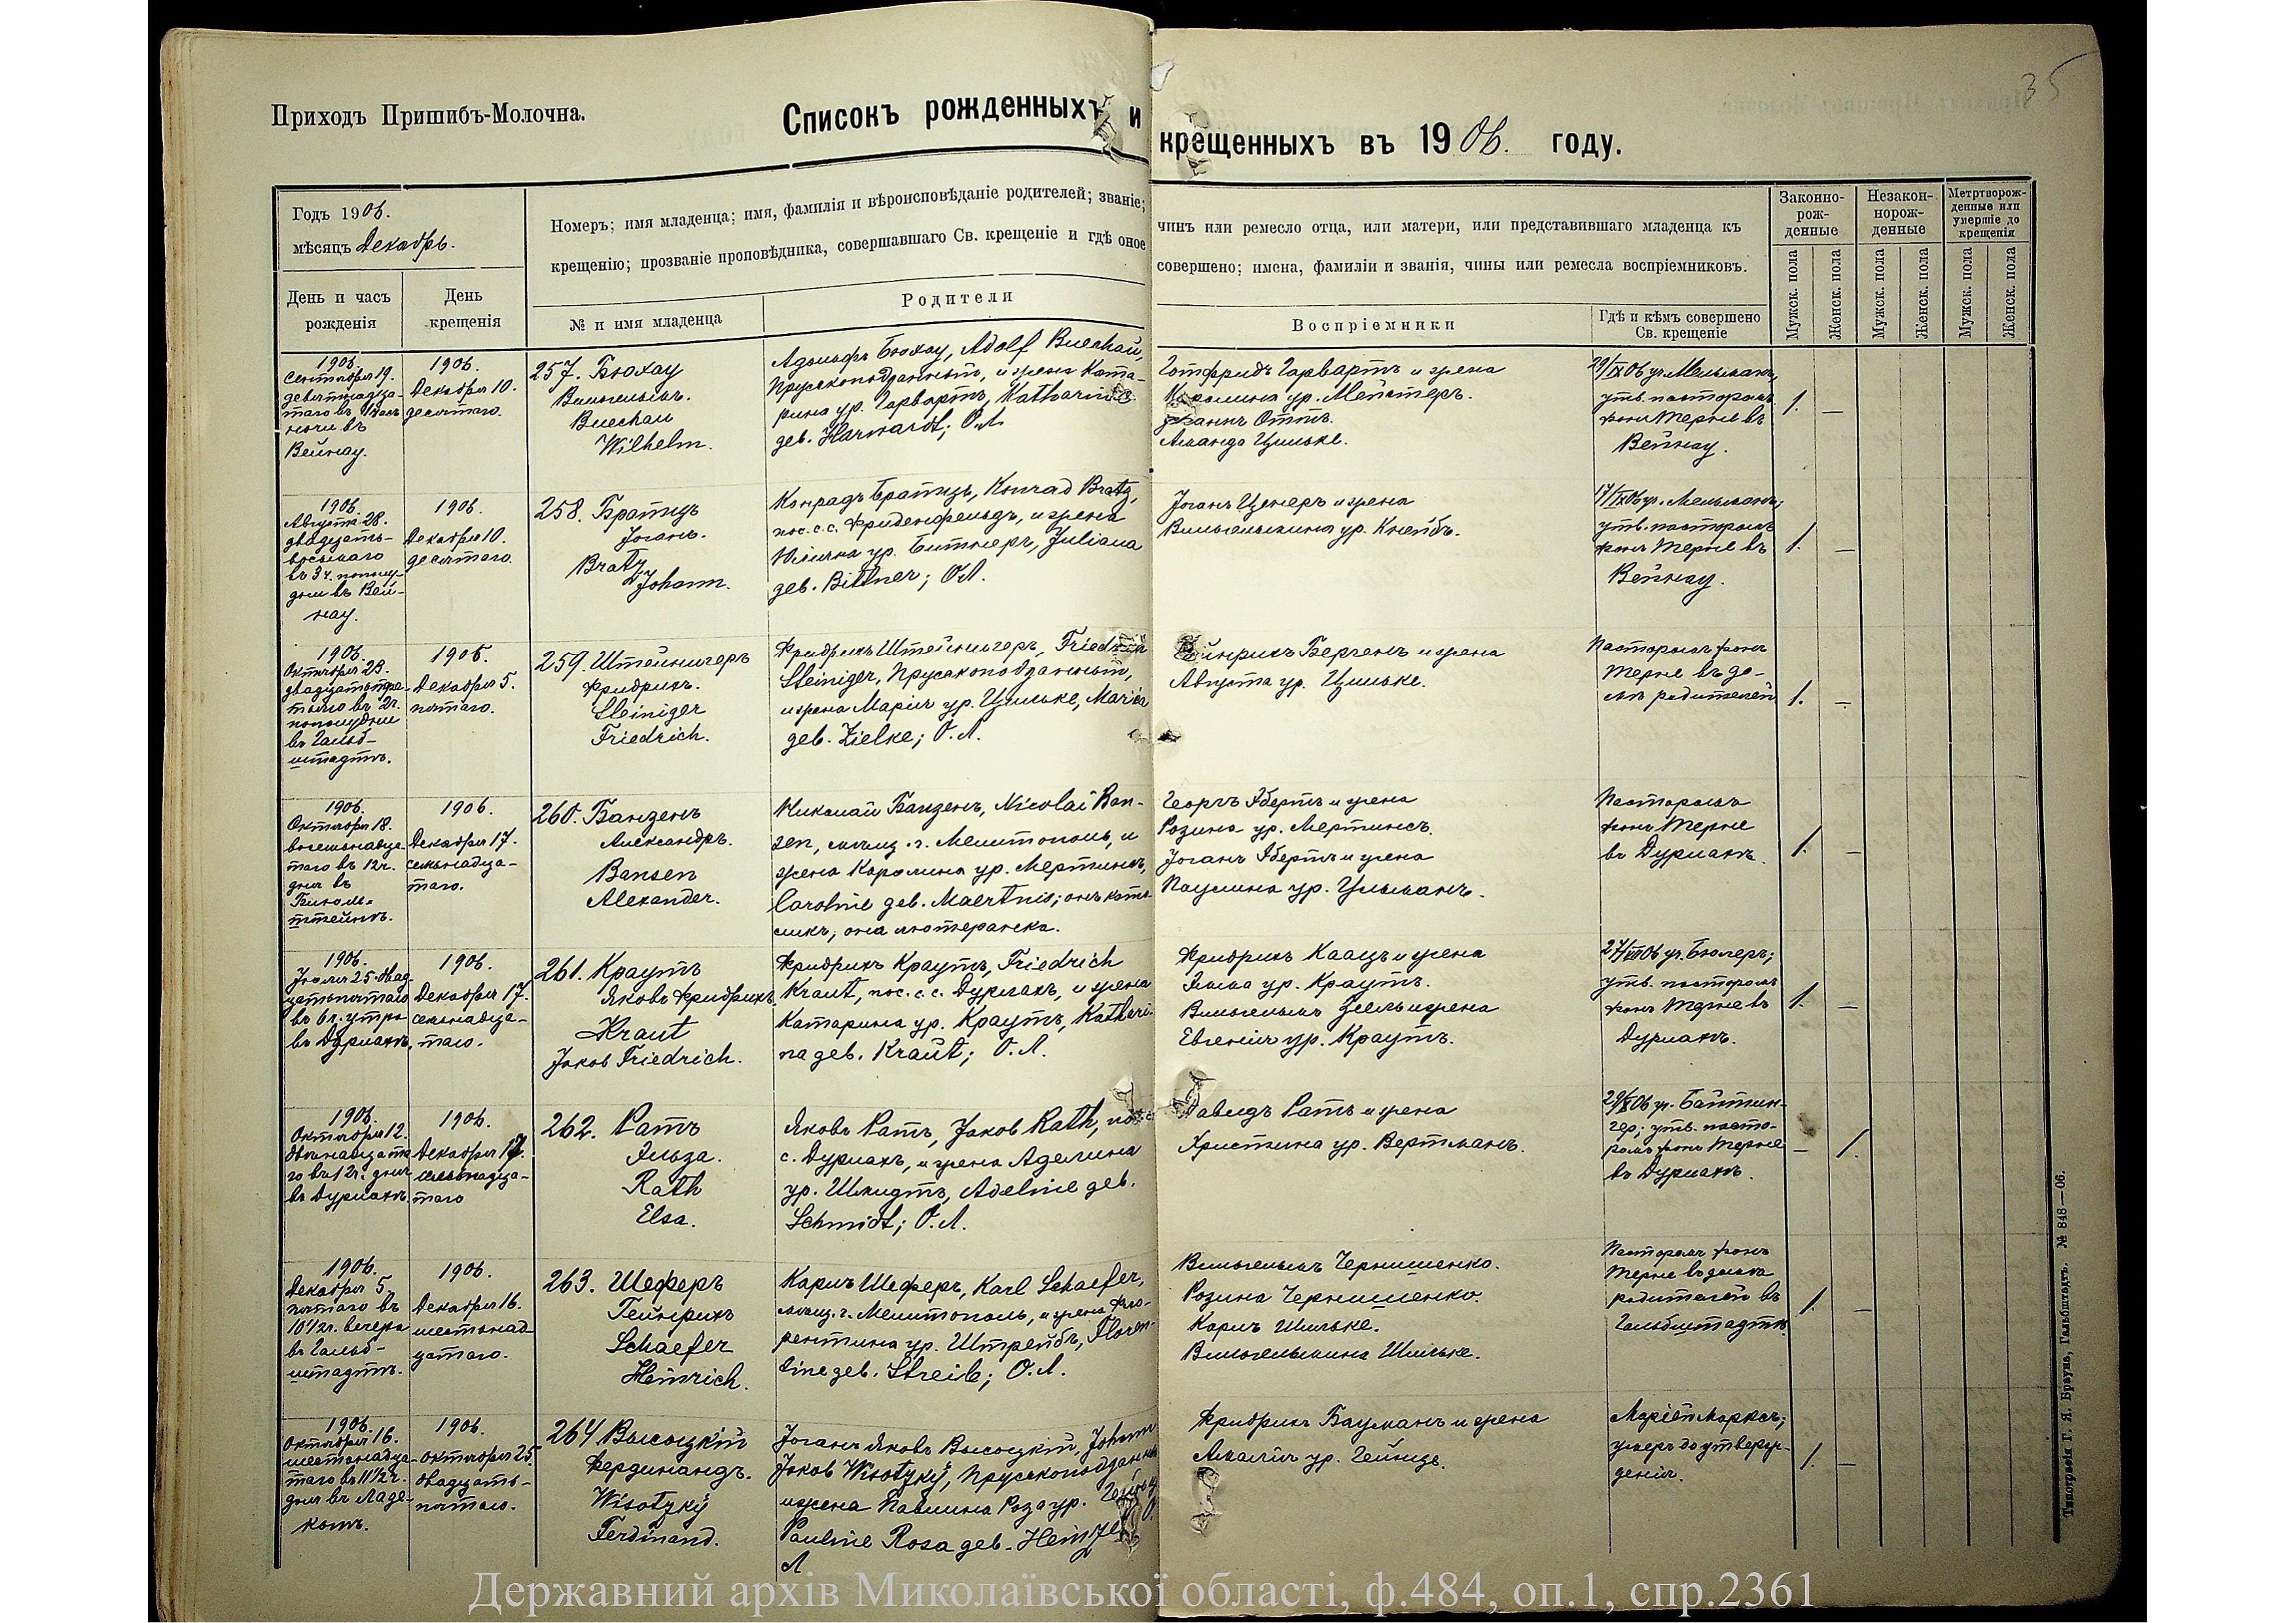 35
Приходъ Пришибъ-Молочна.
Списокъ рожденныхъ и крещенныхъ въ 1906. году.
Годъ 1906.
мѣсяцъ Декабрь.
Номеръ; имя младенца; имя, фамилія и вѣроисповѣданіе родителей; званіе;
чинъ или ремесло отца, или матери, или представившаго младенца къ
крещенію; прозваніе проповѣдника, совершавшаго Св. крещеніе и гдѣ оное
совершено; имена, фамиліи и званія, чины или ремесла воспріемниковъ.
Законно-
рож-
денные
Незакон-
норож-
денные
Метртворож-
денные или
умершіе до
крещенія
День и часъ
рожденія
День
крещенія
№ и имя младенца
Родители
Воспріемники
Гдѣ и кѣмъ совершено
Св. крещеніе
Мужск. пола
Женск. пола
Мужск. пола
Женск. пола
Мужск. пола
Женск. пола
1906.
Сентября 19.
девятнадца-
таго въ
ночи въ
Вейнау.
1906.
Декабря 10.
десятаго.
257. Бюхау
Вильгельмъ.
Buechau
Wilhelm.
Адольфъ Бюхау, Adolf Buechau,
Прусскоподданный, и жена Ката-
рина ур. Гарвартъ, Katharine
geb. Harwardt; О.Л.
Готфридъ Гарвартъ и жена
Каролина ур. Мейстеръ.
Оттъ.
Аманда Цильке.
29/IX06 уч. Мельманъ,
утв. пасторомъ
фонъ Терне въ
Вейнау.
1. —
1906.
Августа 28.
двадцать-
восьмаго
въ 3 ч. полу-
дни въ Вей-
нау.
1906.
Декабря 10.
десятаго.
258. Братцъ
Іоганъ.
Bratz
Johann.
Конрадъ Братцъ, Konrad Bratz,
пос. с. с. Фриденфельдъ, и жена
Юліяна ур. Битнеръ, Juliana
geb. Bittner; О.Л.
Іоганъ Ценеръ и жена
Вильгельмина ур. Кнейбъ.
17/IX06 уч. Мельманъ;
утв. пасторомъ
фонъ Терне въ
Вейнау.
1. —
1906.
Октября 23.
двадцатьтре-
тьяго въ 2 ч.
пополудни
въ Гальб-
штадтѣ.
1906.
Декабря 5.
пятаго.
259. Штейнигеръ
Фридрихъ.
Steiniger
Friedrich.
Фридрихъ Штейнигеръ, Friedrich
Steiniger, Прусскоподданный,
и жена Марія ур. Цильке, Maria
geb. Zielke; О.Л.
Гейнрихъ Бергенъ и жена
Августа ур. Цильке.
Пасторомъ фонъ
Терне въ до-
мѣ родителей
1. —
1906.
Октября 18.
восемьнадца-
таго въ 12 ч.
дня въ
Тиголь-
штейнъ.
1906.
Декабря 17.
семьнадца-
таго.
260. Банзенъ
Александръ.
Bansen
Alexander.
Николай Банзенъ, Nicolai Ban-
sen, мѣщ. г. Мелитополь, и
жена Каролина ур. Мертинсъ,
Caroline geb. Maertnis; онъ като-
ликъ; она лютеранка.
Георгъ Эбертъ и жена
Розина ур. Мертинсъ.
Іоганъ Эбертъ и жена
Паулина ур. Ульманъ.
Пасторомъ
фонъ Терне
въ Дурлахъ.
1. —
1906.
Іюля 25. двад-
цатьпятаго
въ 6 ч. утра
въ Дурлахъ.
1906.
Декабря 17.
семьнадца-
таго.
261. Краутъ
Яковъ Фридрихъ.
Kraut
Jakob Friedrich.
Фридрихъ Краутъ, Friedrich
Kraut, пос. с. с. Дурлахъ, и жена
Катарина ур. Краутъ, Katheri-
na geb. Kraut; О.Л.
Фридрихъ Каацъ и жена
Эмма ур. Краутъ.
Вильгельмъ и жена
Евгенія ур. Краутъ.
27/VII06 уч. Бюлеръ;
утв. пасторомъ
фонъ Терне въ
Дурлахъ.
1. —
1906.
Октября 12.
двенадцата-
го въ 12 ч. дня
въ Дурлахъ.
1906.
Декабря 17.
семьнадца-
таго
262. Ратъ
Эльза.
Rath
Elsa.
Яковъ Ратъ, Jakob Rath, пос.
с. Дурлахъ, и жена Аделина
ур. Шмидтъ, Adeline geb.
Schmidt; О.Л.
Давидъ Ратъ и жена
Христина ур. Вертманъ.
29/X06 уч. Байтин-
гер; утв. пасто-
ромъ фонъ Терне
въ Дурлахъ.
— 1.
1906.
Декабря 5.
пятаго въ
10 1/2 ч. вечера
въ Гальб-
штадтѣ.
1906.
Декабря 16.
шестьнад-
цатаго.
263. Шеферъ
Гейнрихъ
Schaefer
Heinrich.
Карлъ Шеферъ, Karl Schaefer,
мѣщ. г. Мелитополь, и жена Фло-
рентина ур. Штрейбъ, Floren-
tine geb. Streib; О.Л.
Вильгельмъ Чернишенко.
Розина Чернишенко.
Карлъ Шильке.
Вильгельмина Шильке.
Пасторомъ фонъ
Терне въ домѣ
родителей въ
Гальбштадтѣ
1. —
1906.
Октября 16.
шестьнадца-
таго въ 11 1/2 ч.
дня въ Ладе-
копъ.
1906.
Октября 25.
двадцать-
пятаго.
264 Высоцкій
Фердинандъ.
Wisotzky
Ferdinand.
Іоганъ Яковъ Высоцкій, Johann
Jakob Wisotzky, Прусскоподданный
и жена Павлина Роза ур. Гейнце
Pauline Rosa geb. Heinze О.
Л
Фридрихъ Бауманъ и жена
Амалія ур. Гейнце.
Марксъ;
умеръ до утверж-
денія.
1. —
Типографія Г. Я. Брауна, Гальбштадтъ. № 848—06.
Державний архів Миколаївської області, ф.484, оп.1, спр.2361